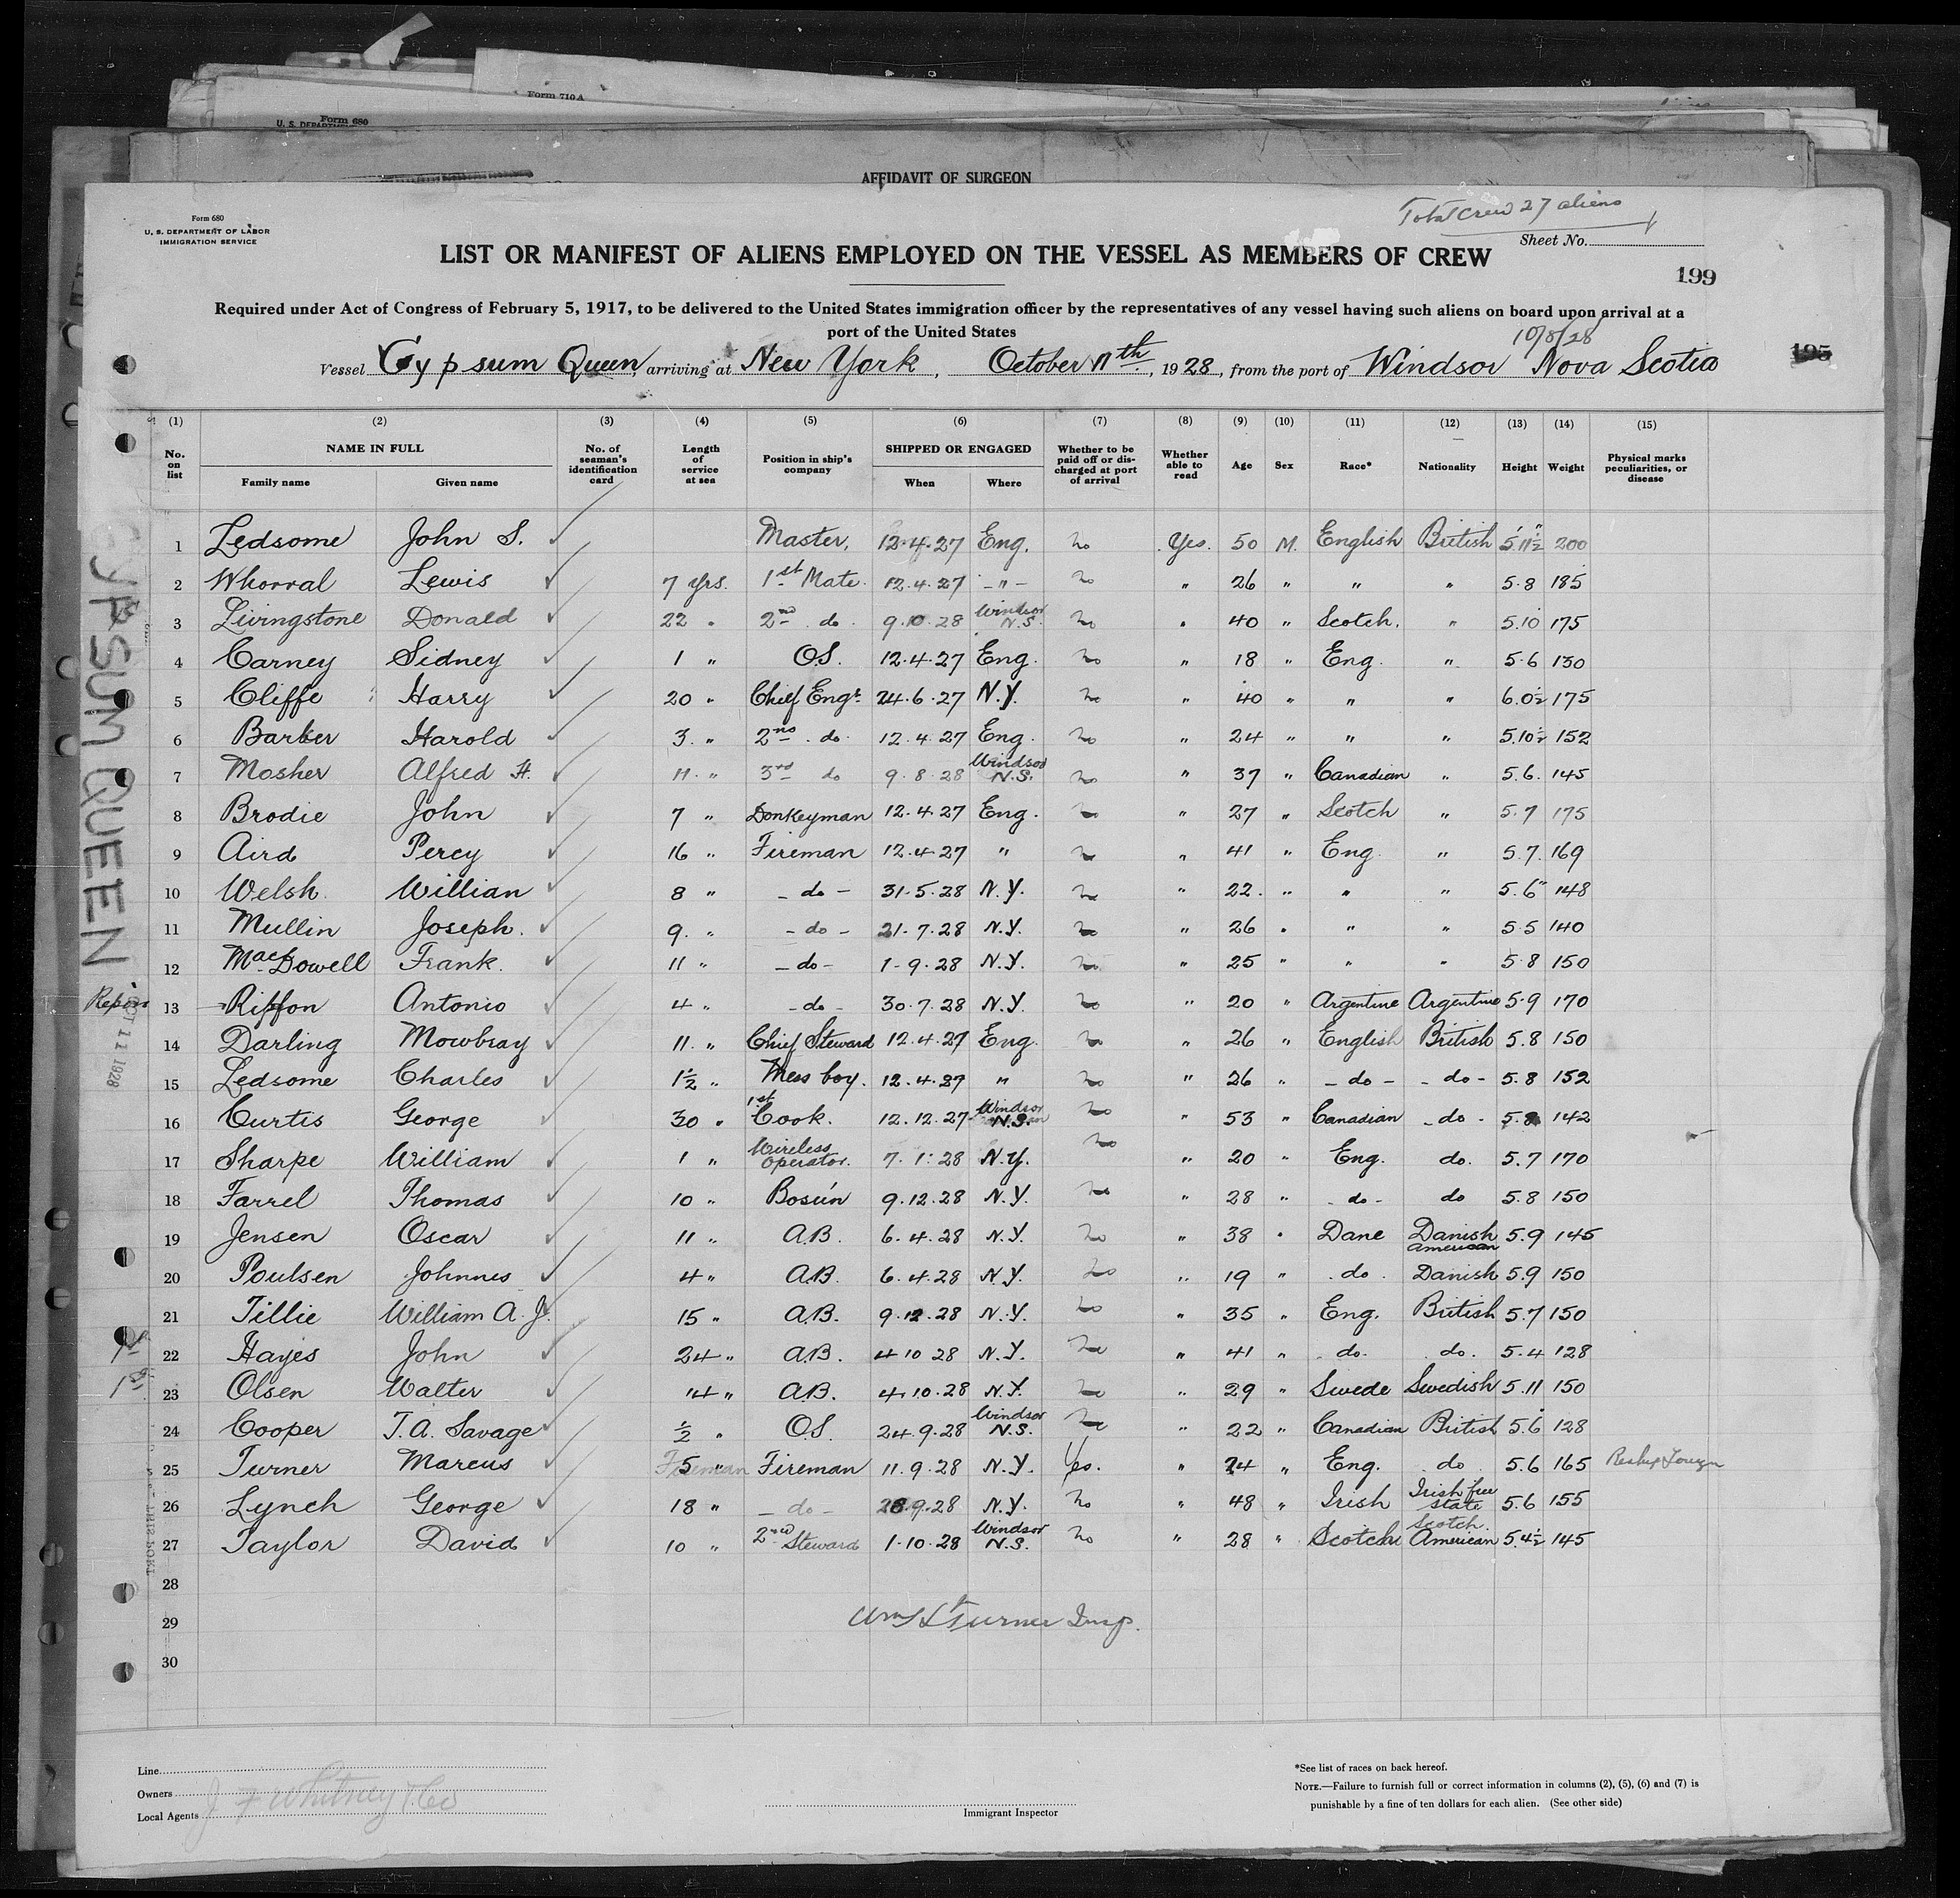 Form 710 A
Form 680
U. S. DEPARTMENT
AFFIDAVIT OF SURGEON
Total Crew 27 aliens
Form 680
U. S. DEPARTMENT OF LABOR
IMMIGRATION SERVICE
Sheet No.
LIST OR MANIFEST OF ALIENS EMPLOYED ON THE VESSEL AS MEMBERS OF CREW
199
Required under Act of Congress of February 5, 1917, to be delivered to the United States immigration officer by the representatives of any vessel having such aliens on board upon arrival at a
port of the United States
10/8/28
Vessel Gypsum Queen, arriving at New York, October 11th, 1928, from the port of Windsor Nova Scotia
195
(1) (2) (3) (4) (5) (6) (7) (8) (9) (10) (11) (12) (13) (14) (15)
No. on list NAME IN FULL Family name Given name No. of seaman's identification card Length of service at sea Position in ship's company SHIPPED OR ENGAGED When Where Whether to be paid off or discharged at port of arrival Whether able to read Age Sex Race* Nationality Height Weight Physical marks peculiarities, or disease
1 Ledsome John S. Master. 12.4.27 Eng. no Yes. 50 M. English British 5'11½" 200
2 Whorral Lewis 7 Yrs. 1st Mate. 12.4.27 -"- no " 26 " " " 5.8 185
3 Livingstone Donald 22 " 2nd do 9.10.28 Windsor N.S. no " 40 " Scotch. " 5.10 175
4 Carney Sidney 1 " O.S. 12.4.27 Eng. no " 18 " Eng. " 5.6 130
5 Cliffe Harry 20 " Chief Engr. 24.6.27 N.Y. no " 40 " " " 6.0½ 175
6 Barber Harold 3. " 2nd do. 12.4.27 Eng. no " 24 " " " 5.10½ 152
7 Mosher Alfred H. 11. " 3rd do 9.8.28 Windsor N.S. no " 37 " Canadian " 5.6. 145
8 Brodie John 7 " Donkeyman 12.4.27 Eng. no " 27 " Scotch " 5.7 175
9 Aird Percy 16 " Fireman 12.4.27 " no " 41 " Eng. " 5.7. 169
10 Welsh. Willian 8 " - do - 31.5.28 N.Y. no " 22. " " " 5.6" 148
11 Mullin Joseph. 9. " - do - 21.7.28 N.Y. no " 26 " " " 5.5 140
12 MacDowell Frank. 11 " - do - 1.9.28 N.Y. no " 25 " " " 5.8 150
13 Riffon Antonio 4 " - do - 30.7.28 N.Y. no " 20 " Argentine Argentine 5.9 170
14 Darling Mowbray 11. " Chief Steward 12.4.27 Eng. no " 26 " English British 5.8 150
15 Ledsome Charles 1½ " Mess boy. 12.4.27 " no " 26 " - do - - do - 5.8 152
16 Curtis George 30 " 1st Cook. 12.12.27 Windsor N.S. no " 53 " Canadian - do - 5.8 142
17 Sharpe William 1 " Wireless operator. 7.1.28 N.Y. no " 20 " Eng. do. 5.7 170
18 Farrel Thomas 10 " Bosun 9.12.28 N.Y. no " 28 " - do - do 5.8 150
19 Jensen Oscar 11 " A.B. 6.4.28 N.Y. no " 38 " Dane Danish American 5.9 145
20 Poulsen Johnnes 4 " A.B. 6.4.28 N.Y. no " 19 " do. Danish 5.9 150
21 Tillie William A. J. 15 " A.B. 9.12.28 N.Y. no " 35 " Eng. British 5.7 150
22 Hayes John 24 " A.B. 4 10 28 N.Y. no " 41 " do. do. 5.4 128
23 Olsen Walter 14 " A.B. 4.10.28 N.Y. no " 29 " Swede Swedish 5.11 150
24 Cooper T.A. Savage ½ " O.S. 24.9.28 Windsor N.S. no " 22 " Canadian British 5.6 128
25 Turner Marcus 5 " Fireman 11.9.28 N.Y. Yes. " 24 " Eng. do 5.6 165
26 Lynch George 18 " - do - 28.9.28 N.Y. no " 48 " Irish Irish free state 5.6 155
27 Taylor David 10 " 2nd Steward 1.10.28 Windsor N.S. no " 28 " Scotch Scotch American 5.4½ 145
28
29
30
Turner Insp.
GYPSUM QUEEN
OCT 11 1928
Line
Owners
Local Agents J F Whitney & Co
Immigrant Inspector
*See list of races on back hereof.
NOTE.—Failure to furnish full or correct information in columns (2), (5), (6) and (7) is
punishable by a fine of ten dollars for each alien. (See other side)